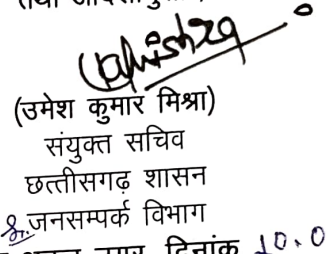 (उमेश कुमार मिश्रा)
संयुक्त सचिव
छत्तीसगढ़ शासन
जनसम्पर्क विभाग
नगर, दिनांक 10.0